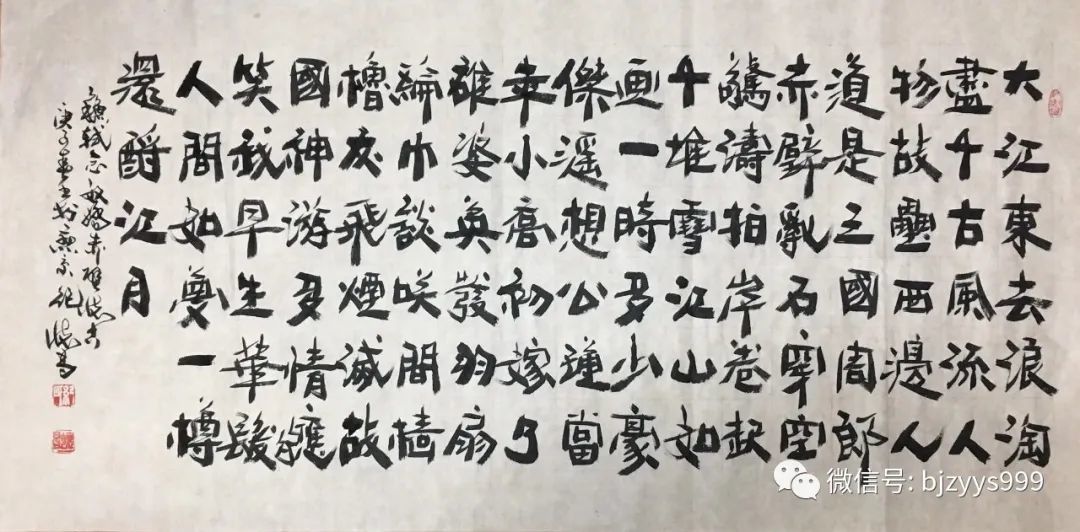 大江東去浪淘
盡千古風流人
物故壘西邊人
道是三國周郎
赤壁亂石穿空
驚濤拍岸卷起
千堆雪江山如
画一時多少豪
傑遥想公瑾當
年小喬初嫁了
雄姿英發羽扇
綸巾談笑間檣
櫓灰飛煙滅故
國神游多情應
笑我早生華髮
人間如夢一樽
還酹江月
蘇軾念奴嬌赤壁懷古
微信号: bjzyys999